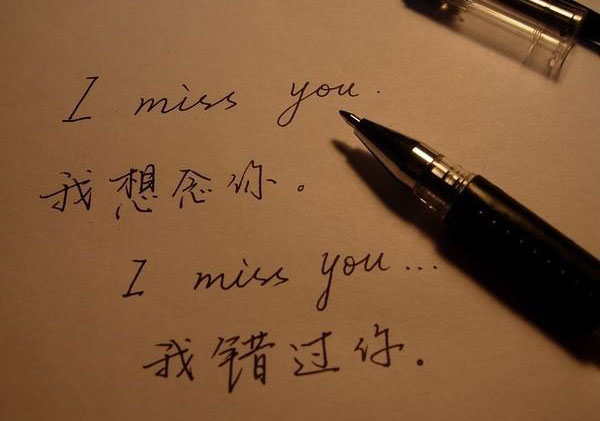 I miss you.
我想念你。
I miss you...
我错过你。